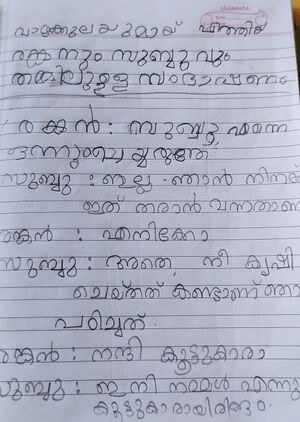 classmate
വാഴക്കുലയുമായ് എത്തിയ
രങ്കനും സുബ്ബുവും
തമ്മിലുള്ള സംഭാഷണം
രങ്കൻ: സുബ്ബു എന്നെ
ഒന്നും ചെയ്യരുതേ.
സുബ്ബു : ഇല്ല ഞാൻ നിനക്ക്
ഇത് തരാൻ വന്നതാണ്
രങ്കൻ : എനിക്കോ
സുബ്ബു : അതെ, നീ കൃഷി
ചെയ്തത് കണ്ടാണ് ഞാ
പഠിച്ചത്.
രങ്കൻ: നന്ദി കൂട്ടുകാരാ
സുബ്ബു : ഇനി നമ്മൾ എന്നു
കൂട്ടുകാരായിരിക്കും.